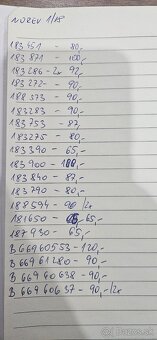 NOREV 1/18
183451 - 80,-
183871 - 100,-
183286 - 2x 92,-
183272 - 90,-
188573 - 90,-
183283 - 90,-
183753 - 87,-
183275 - 80,-
183390 - 65,-
183900 - 100,-
183840 - 87,-
183790 - 80,-
188594 - 90 /2x
181650 - 65,-
187930 - 65,-
B 66960553 - 120,-
B 66961280 - 90,-
B 66960638 - 90,-
B 66960637 - 90,- /2x
bazos.sk